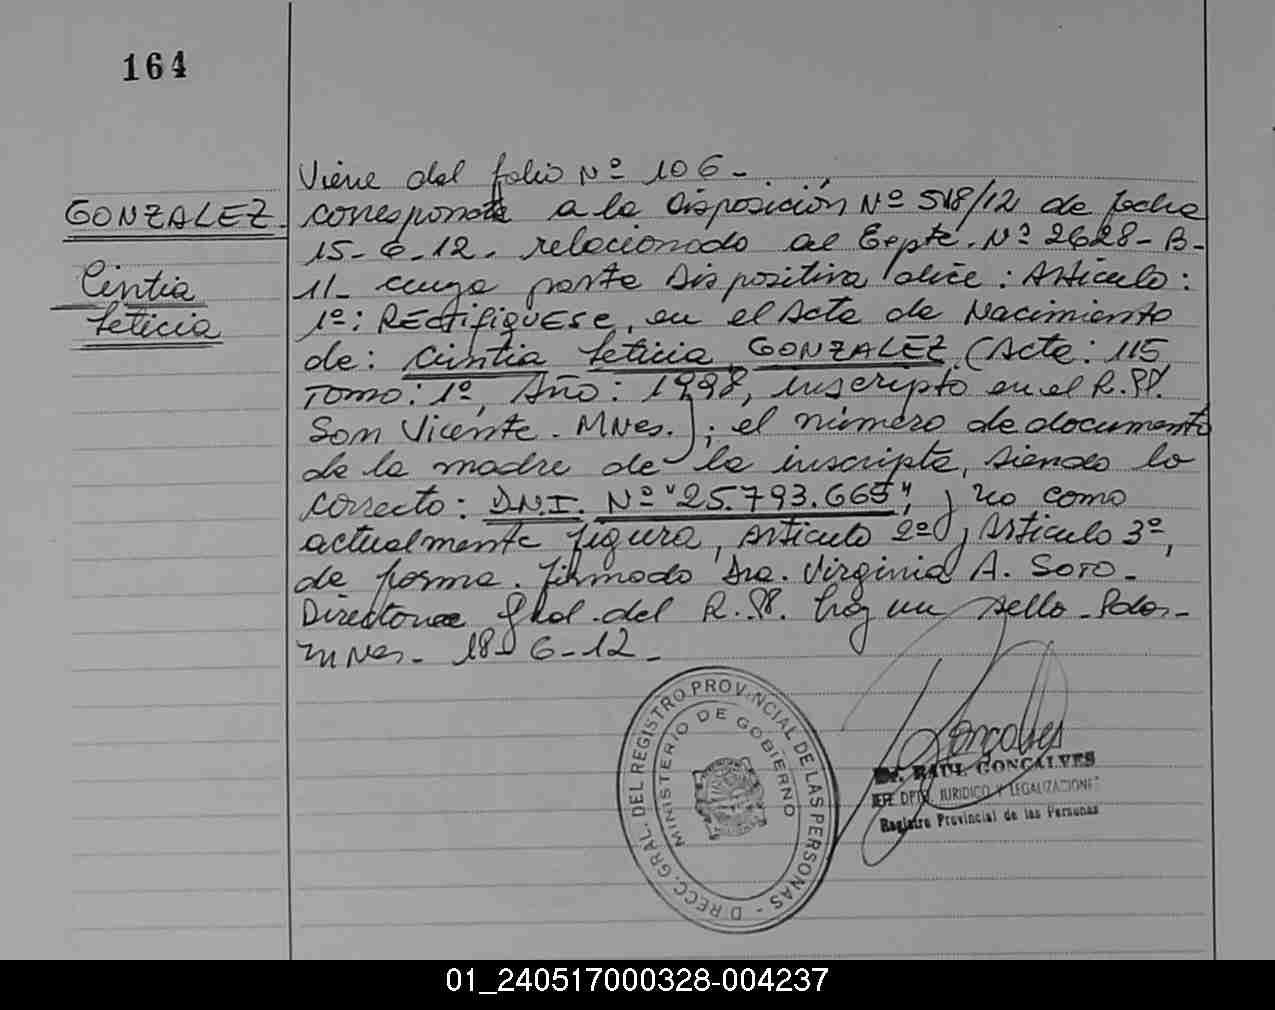 164
GONZALEZ.
Cintia
Leticia
Viene del folio Nº 106-
corresponde a la Disposición Nº 518/12 de fecha
15-6-12. relacionado al Expte. Nº 2628-B-
11- cuya parte Dispositiva dice: Artículo:
1º: RECTIFIQUESE, en el Acta de Nacimiento
de: Cintia Leticia GONZALEZ (Acta: 115
Tomo: 1º, Año: 1998, inscripto en el R.PP.
San Vicente. MNes.); el número de documento
de la madre de la inscripta, siendo lo
correcto: D.N.I. Nº "25.793.665", y no como
actualmente figura, Artículo 2º y Artículo 3º,
de forma. firmado Dra. Virginia A. Soto-
Directora Gral. del R.PP. hay un sello-Pdas-
MNes- 18-6-12-
DIRECC. GRAL. DEL REGISTRO PROVINCIAL DE LAS PERSONAS -
MINISTERIO DE GOBIERNO
Gonçalves
Dr. RAUL GONÇALVES
JEFE DPTO. JURIDICO Y LEGALIZACIONES
Registro Provincial de las Personas
01_240517000328-004237